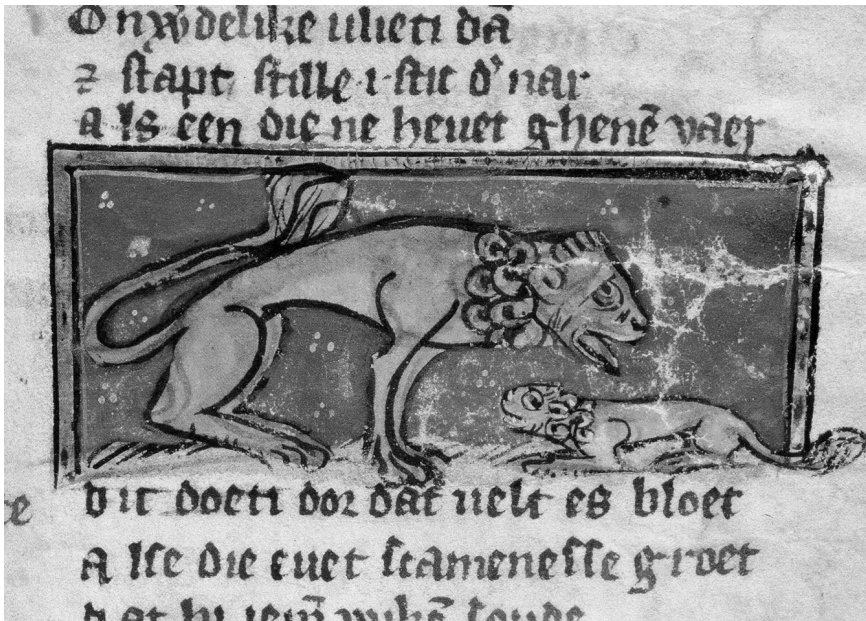 On wdelike vlieti dā
⁊ stapt stille i stic dʾ nar
Als een die ne hevet ghenē vaer
Dit doeti dor dat velt es bloet
Alse die evet scamenesse groet
dat hi